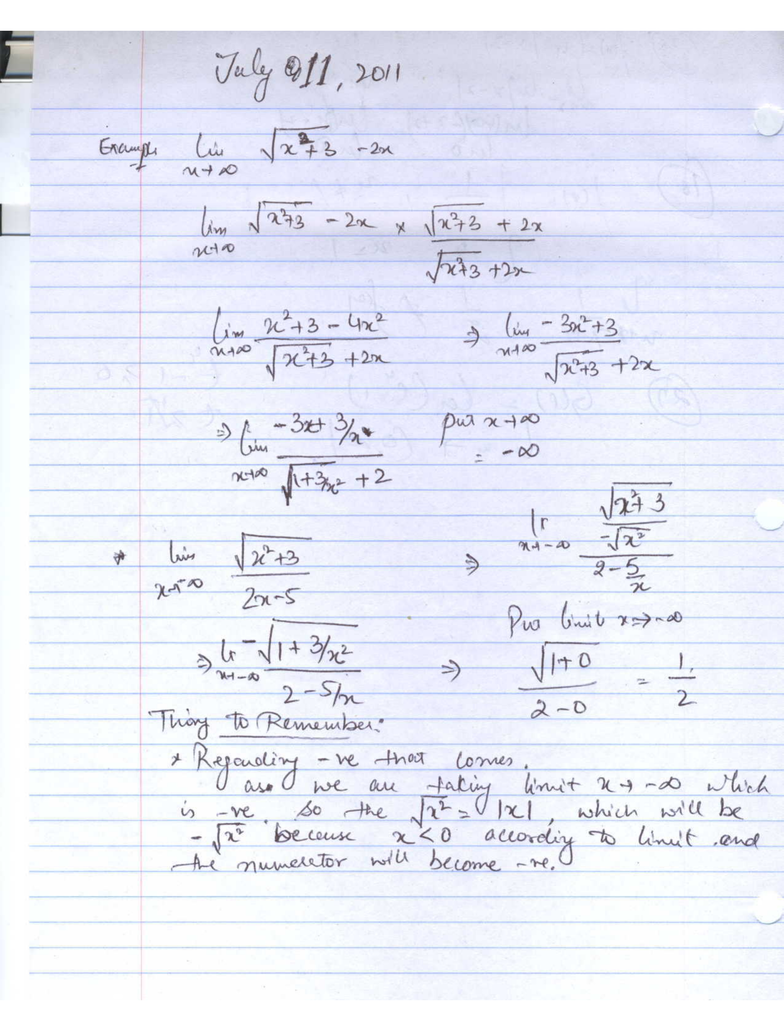 July 011, 2011
Example lim x→∞ √(x²+3) -2x
lim x→∞ √(x²+3) - 2x × (√(x²+3) + 2x)/(√(x²+3) + 2x)
lim x→∞ (x²+3 - 4x²)/(√(x²+3) + 2x) ⇒ lim x→∞ (-3x²+3)/(√(x²+3) + 2x)
⇒ lim x→∞ (-3x+ 3/x)/(√(1+3/x²) + 2) put x→∞ = -∞
* lim x→-∞ √(x²+3)/(2x-5) ⇒ lt x→-∞ (√(x²+3)/-√(x²))/(2 - 5/x)
Put limit x→-∞
⇒ lt x→-∞ -√(1 + 3/x²)/(2 - 5/x) ⇒ √(1+0)/(2-0) = 1/2
Thing to Remember:
* Regarding -ve that comes.
as we are taking limit x→-∞ which
is -ve. So the √x² = |x|, which will be
-√x² because x<0 according to limit and
the numeretor will become -ve.